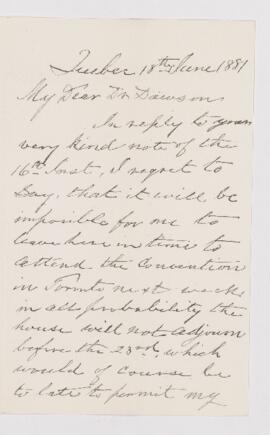 Quebec 18th June 1881
My Dear Dr Dawson
In reply to your
very kind note of the
16th Inst, I regret to
say, that it will be
impossible for me to
leave here in time to
attend the Convention
in Toronto next week
in all probability the
house will not adjourn
before the 23rd, which
would of course be
to late to permit my